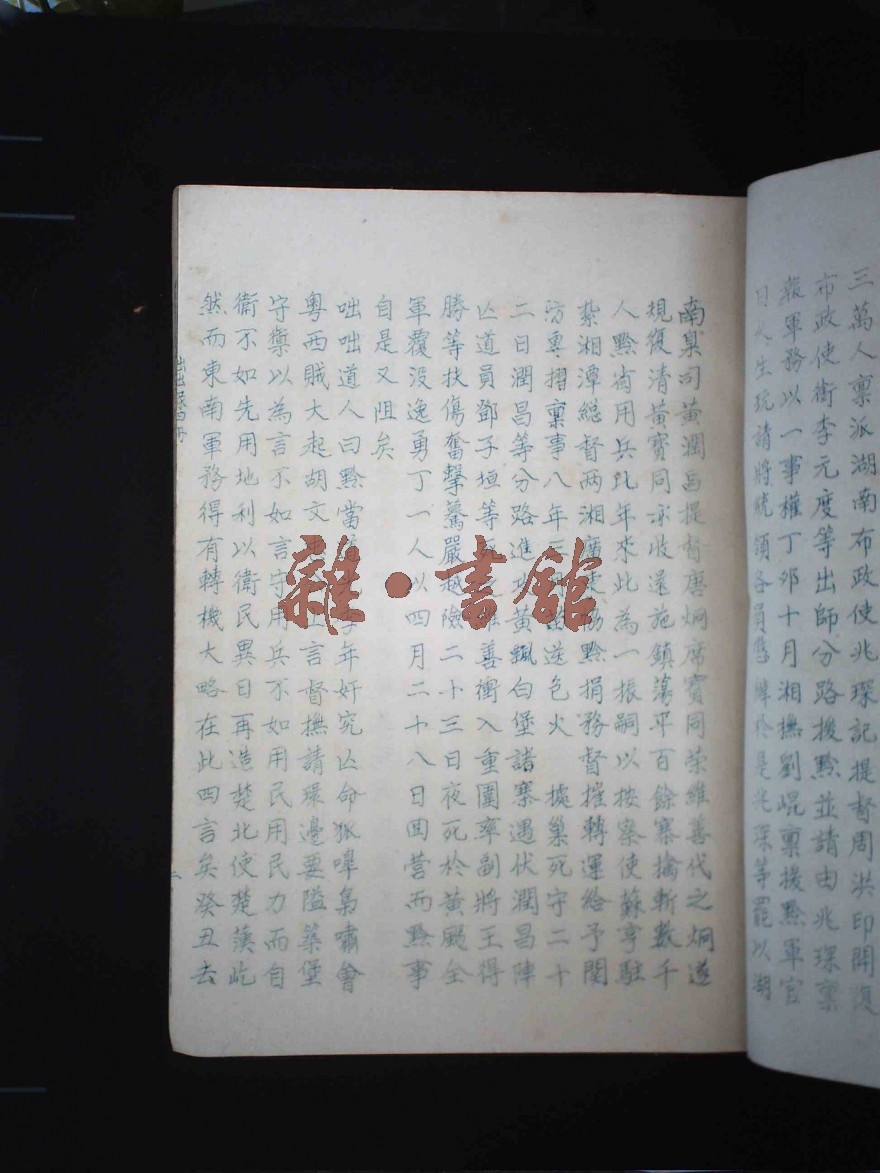 三萬人禀派湖南布政使兆琛記提督周洪印開復
布政使銜李元度等出師分路援黔並請由兆琛禀
報軍務以一事權丁卯十月湘撫劉崐禀援黔軍官
日久生玩請將統領各員懲辦於是兆琛等罷以湖
南臬司黃潤昌提督唐炯席寶同榮維善代之炯遂
規復清黃寶同亦收還施鎮蕩平百餘寨擒斬數千
人黔省用兵以年來此為一振嗣以按察使蘇亨駐
紮湘潭総督两湘廣東協黔捐務督摧轉運給予関
防專摺禀事八年三 送色火 據巢死守二十
二日潤昌等分路進 黃飄白堡諸寨遇伏潤昌陣
亾道員鄧子垣等 維善衝入重圍率副將王得
勝等扶傷奮擊驀嚴越險二十三日夜死於黃飄全
軍覆没逸勇丁一人以四月二十八日回營而黔事
自是又阻矣
咄咄道人曰黔當 年奸宄亾命狐嘷梟嘯會
粵西賊大起胡文 上言督撫請環邊要隘築堡
守禦以為言不如言守用兵不如用民用民力而自
衛不如先用地利以衛民異日再造楚北使楚藩屹
然而東南軍務得有轉機大略在此四言矣癸丑去
二
雜·書館